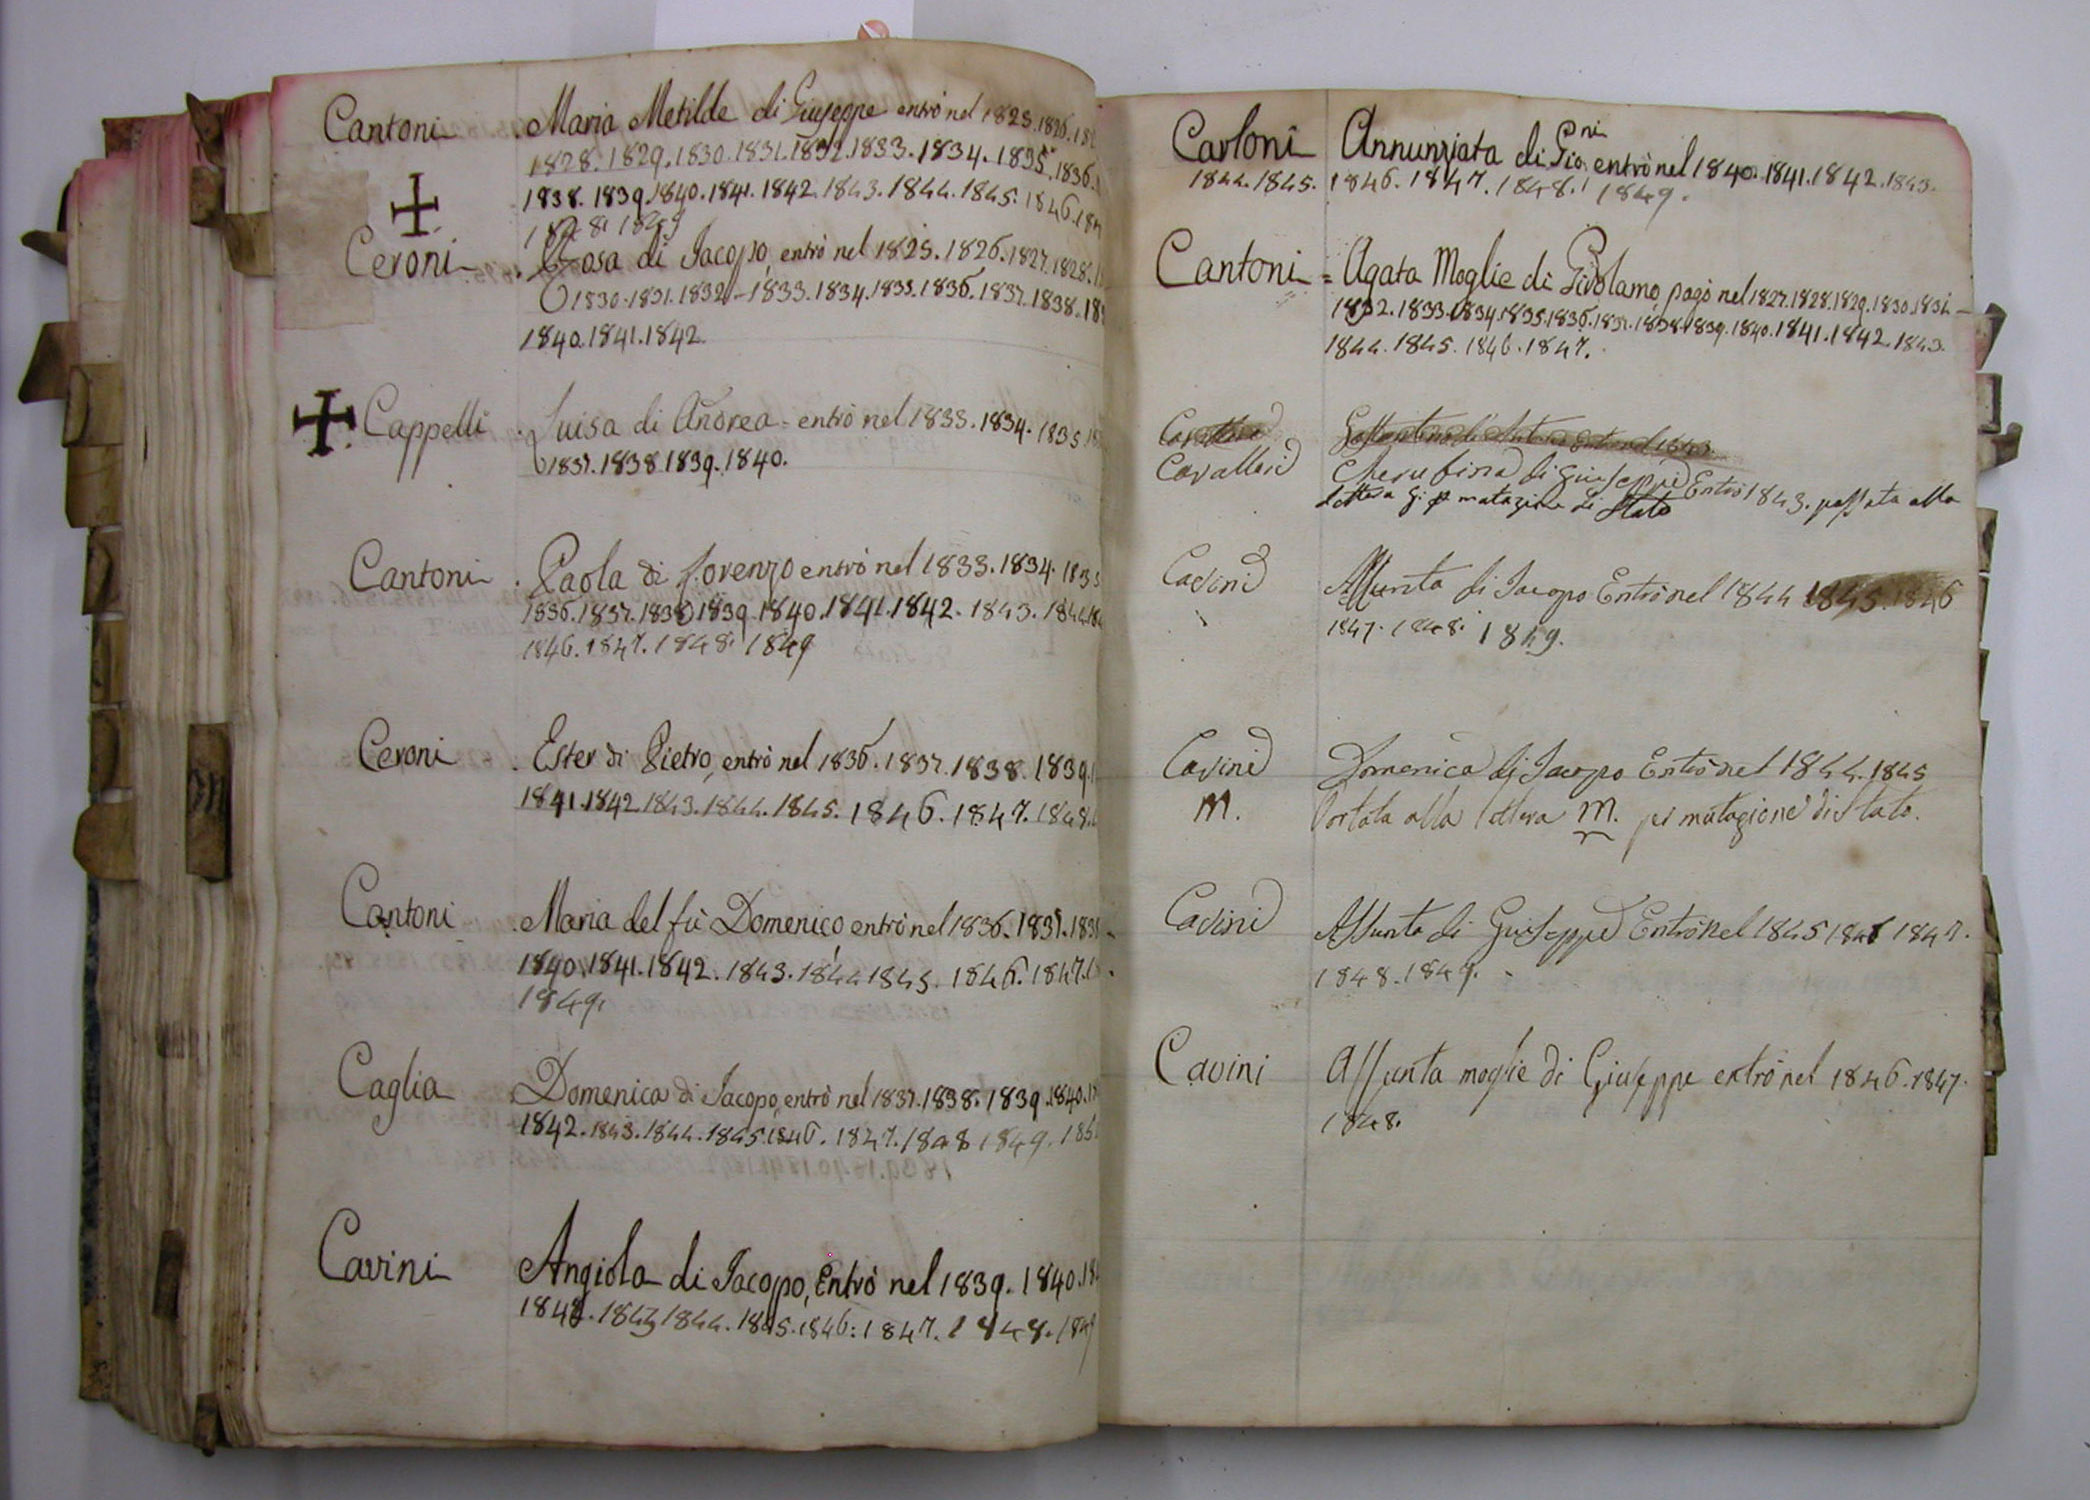 Cantoni Maria Metilde di Giuseppe entrò nel 1825. 1826. 182
1828. 1829. 1830. 1831. 1832. 1833. 1834. 1835. 1836.
1838. 1839. 1840. 1841. 1842. 1843. 1844. 1845. 1846. 184
1848. 1849
Ceroni Rosa di Jacopo, entrò nel 1825. 1826. 1827. 1828.
1830. 1831. 1832. 1833. 1834. 1835. 1836. 1837. 1838. 183
1840. 1841. 1842
Cappelli Luisa di Andrea entrò nel 1833. 1834. 1835.
1837. 1838. 1839. 1840.
Cantoni Paola di Lorenzo entrò nel 1833. 1834. 1835
1836. 1837. 1838. 1839. 1840. 1841. 1842. 1843. 1844. 184
1846. 1847. 1848. 1849
Ceroni Ester di Pietro, entrò nel 1836. 1837. 1838. 1839.
1841. 1842. 1843. 1844. 1845. 1846. 1847. 1848.
Cantoni Maria del fù Domenico, entrò nel 1836. 1837. 183
1840. 1841. 1842. 1843. 1844 1845. 1846. 1847.
1849.
Caglia Domenica di Jacopo, entrò nel 1837. 1838. 1839. 1840.
1842. 1843. 1844. 1845. 1846. 1847. 1848 1849. 185
Cavini Angiola di Jacopo, Entrò nel 1839. 1840. 18
1842. 1843 1844. 1845. 1846: 1847. 1848. 1849
M
Carloni Annunziata di Gio.ni entrò nel 1840. 1841. 1842. 1843.
1844. 1845. 1846. 1847. 1848. 1849.
Cantoni = Agata Moglie di Girolamo pagò nel 1827. 1828. 1829. 1830. 1831
1832. 1833. 1834. 1835. 1836. 1837. 1838. 1839. 1840. 1841. 1842. 1843.
1844. 1845. 1846. 1847.
Cavallari Cherubina di Giuseppe Entrò 1843. passata alla
lettera G. p mutazione di Stato
Cavini Assunta di Jacopo Entrò nel 1844 1845. 1846
1847. 1848. 1849.
Cavini Domenica di Jacopo Entrò nel 1844. 1845
M. Portata alla lettera M. per mutazione di Stato.
Cavini Assunta di Giuseppe Entrò nel 1845 1846 1847.
1848. 1849.
Cavini Assunta moglie di Giuseppe entrò nel 1846. 1847.
1848.